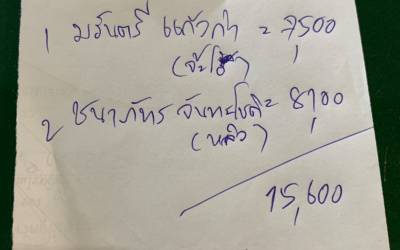 1 มรันตรี แก้วก่า = 7,500
2 ชนาภัทร จันทะโชติ = 8,100
(หลิว)
15,600